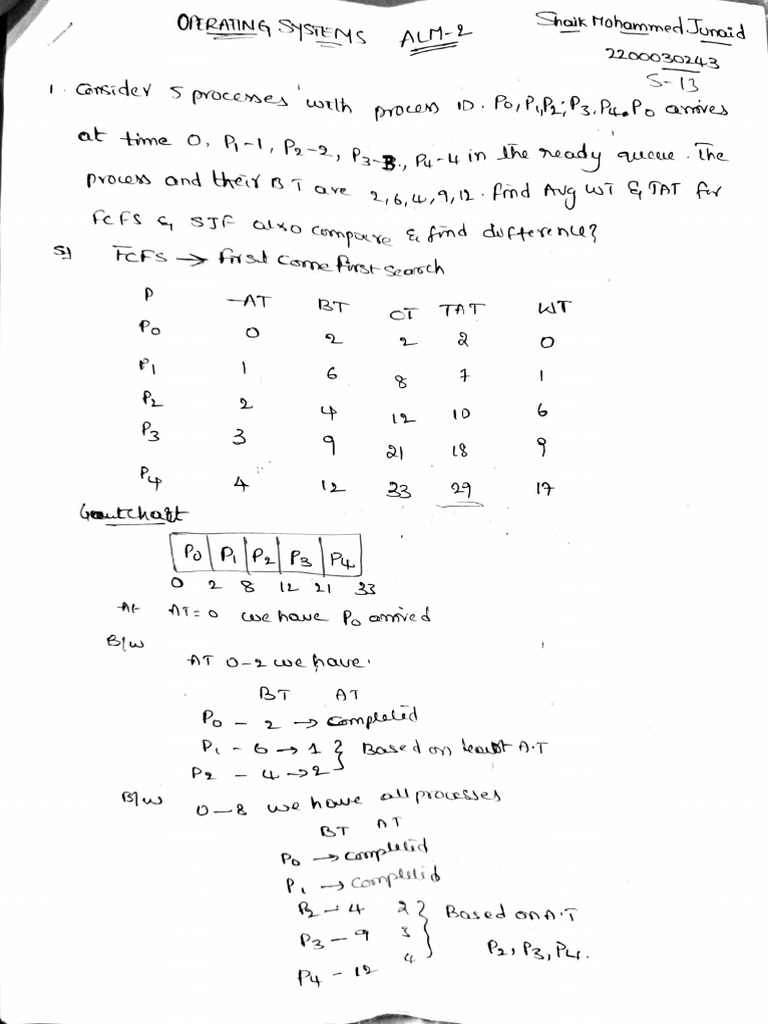 OPERATING SYSTEMS ALM-2
Shaik Mohammed Junaid
2200030243
S-13
1. Consider 5 processes with process ID. P0, P1, P2, P3, P4. P0 arrives
at time 0, P1-1, P2-2, P3-3, P4-4 in the ready queue. The
process and their BT are 2,6,4,9,12. find Avg WT & TAT for
FCFS & SJF also compare & find difference?
S) FCFS → first come first search
P AT BT CT TAT WT
P0 0 2 2 2 0
P1 1 6 8 7 1
P2 2 4 12 10 6
P3 3 9 21 18 9
P4 4 12 33 29 17
P0 P1 P2 P3 P4
0 2 8 12 21 33
At AT=0 we have P0 arrived
B/w
AT 0-2 we have.
BT AT
P0 - 2 → Completed
P1 - 6 → 1 } Based on least A.T
P2 - 4 → 2
B/w 0-8 we have all processes
BT AT
P0 → completed
P1 → Completed
P2 - 4 2 } Based on A.T
P3 - 9 3
P2, P3, P4.
P4 - 12 4